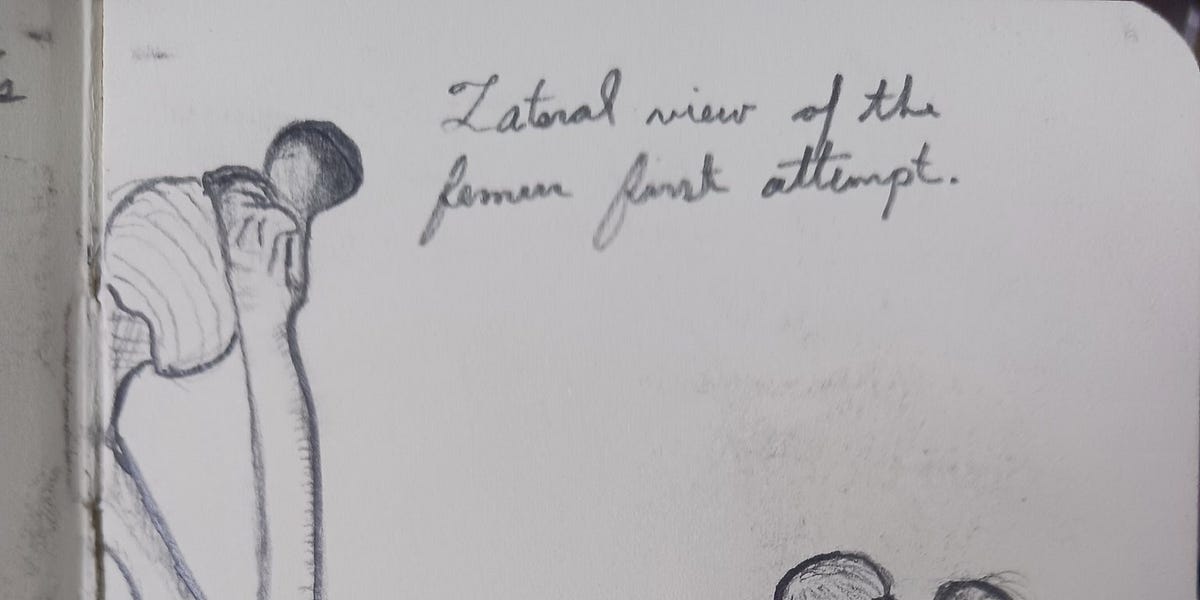 s
Lateral view of the
femur first attempt.